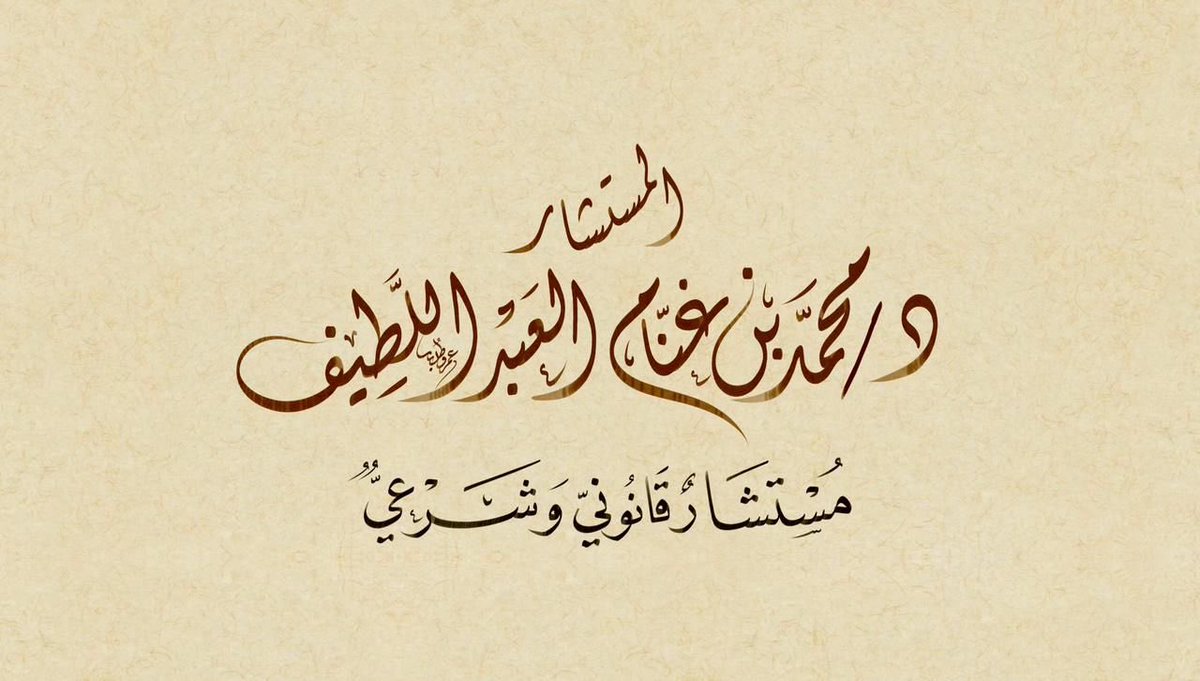 المستشار
د/ محمَّد بن غنَّام العَبْد اللَّطِيف
مُسْتَشَارٌ قَانُونِيّ وَشَرْعِيٌّ